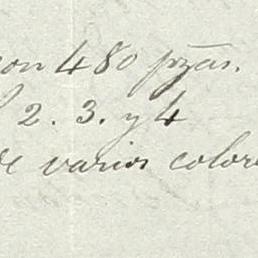 con 480 pzas.
2. 3. y 4
de varios colore